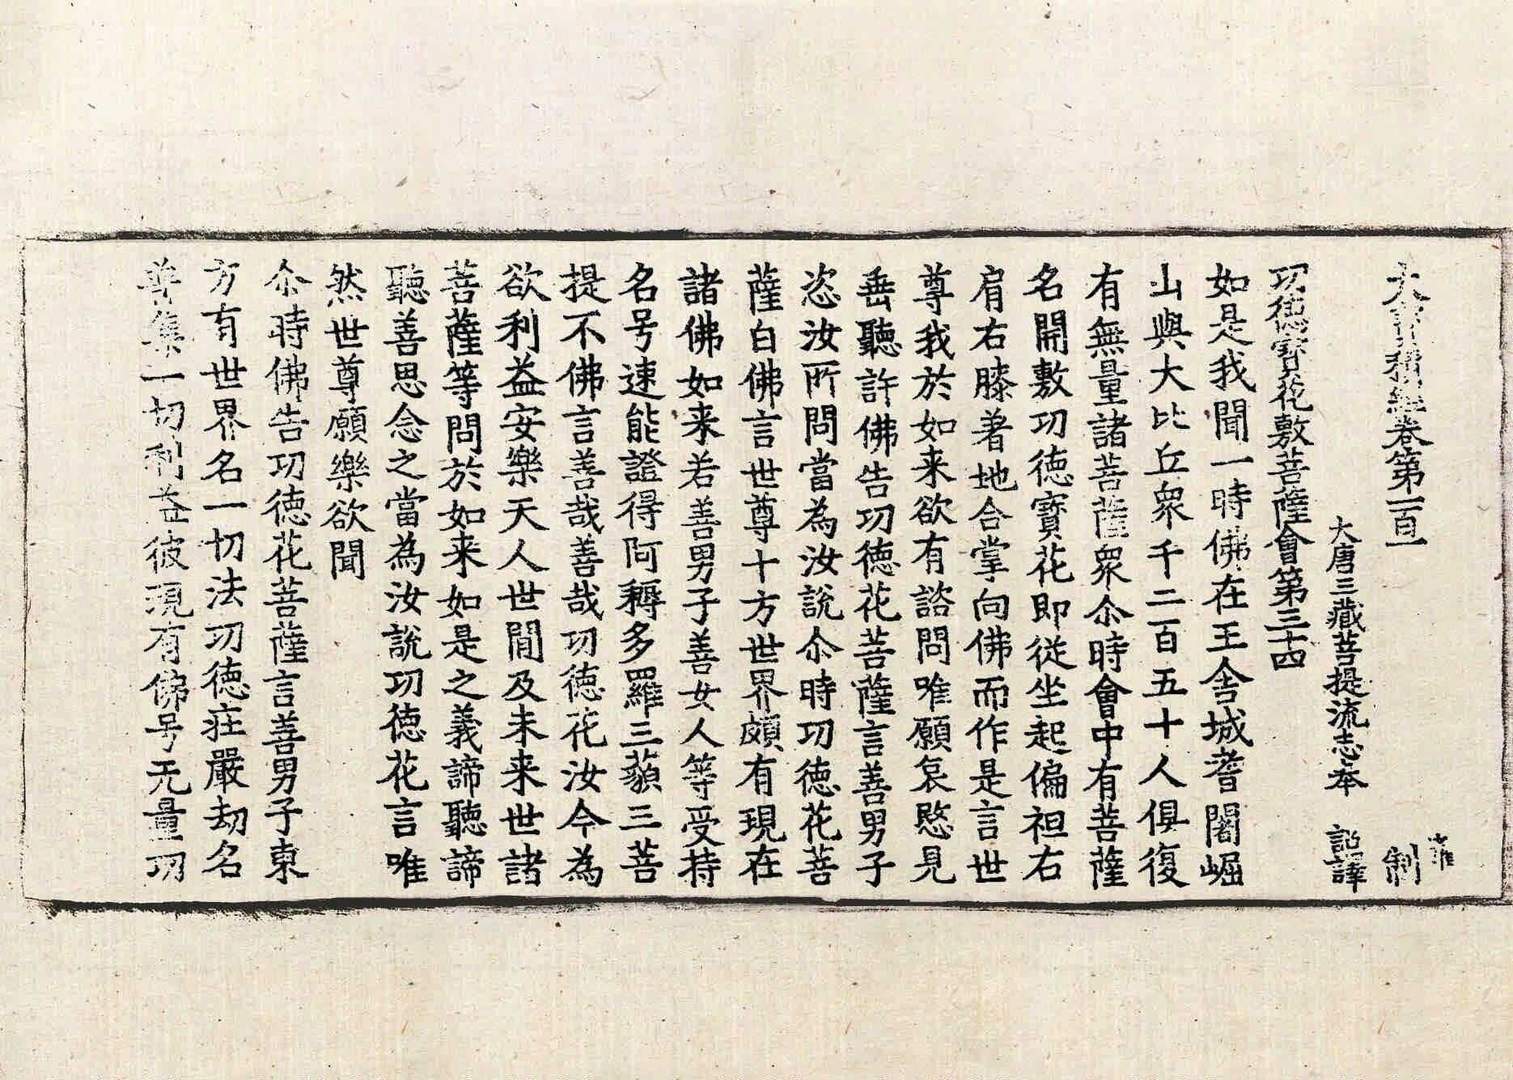 大寶積經卷第一百一　制
菲
大唐三藏菩提流志奉　詔譯
功德寶花敷菩薩會第三十四
如是我聞一時佛在王舍城耆闍崛
山與大比丘衆千二百五十人俱復
有無量諸菩薩衆尒時會中有菩薩
名開敷功德寶花即從坐起偏袒右
肩右膝著地合掌向佛而作是言世
尊我於如来欲有諮問唯願哀愍見
垂聽許佛告功德花菩薩言善男子
恣汝所問當為汝說尒時功德花菩
薩白佛言世尊十方世界頗有現在
諸佛如来若善男子善女人等受持
名号速能證得阿耨多羅三藐三菩
提不佛言善哉善哉功德花汝今為
欲利益安樂天人世間及未来世諸
菩薩等問於如来如是之義諦聽諦
聽善思念之當為汝說功德花言唯
然世尊願樂欲聞
尒時佛告功德花菩薩言善男子東
方有世界名一切法功德莊嚴劫名
普集一切利益彼現有佛号无量功